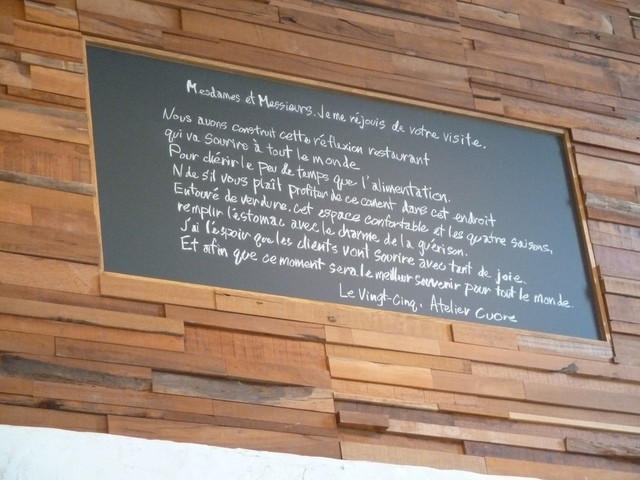 Mesdames et Messieurs. Je me réjouis de votre visite.
Nous avons construit cette réflexion restaurant
qui va sourire à tout le monde
Pour chérir le peu de temps que l'alimentation.
N de s'il vous plaît profiter de ce coment dans cet endroit
Entouré de verdure. cet espace confortable et les quatre saisons,
remplir l'estomac avec le charme de la guérison.
J'ai l'espoir que les clients vont sourire avec tant de joie.
Et afin que ce moment sera le meilleur souvenir pour tout le monde.
Le Vingt-Cinq. Atelier Cuore